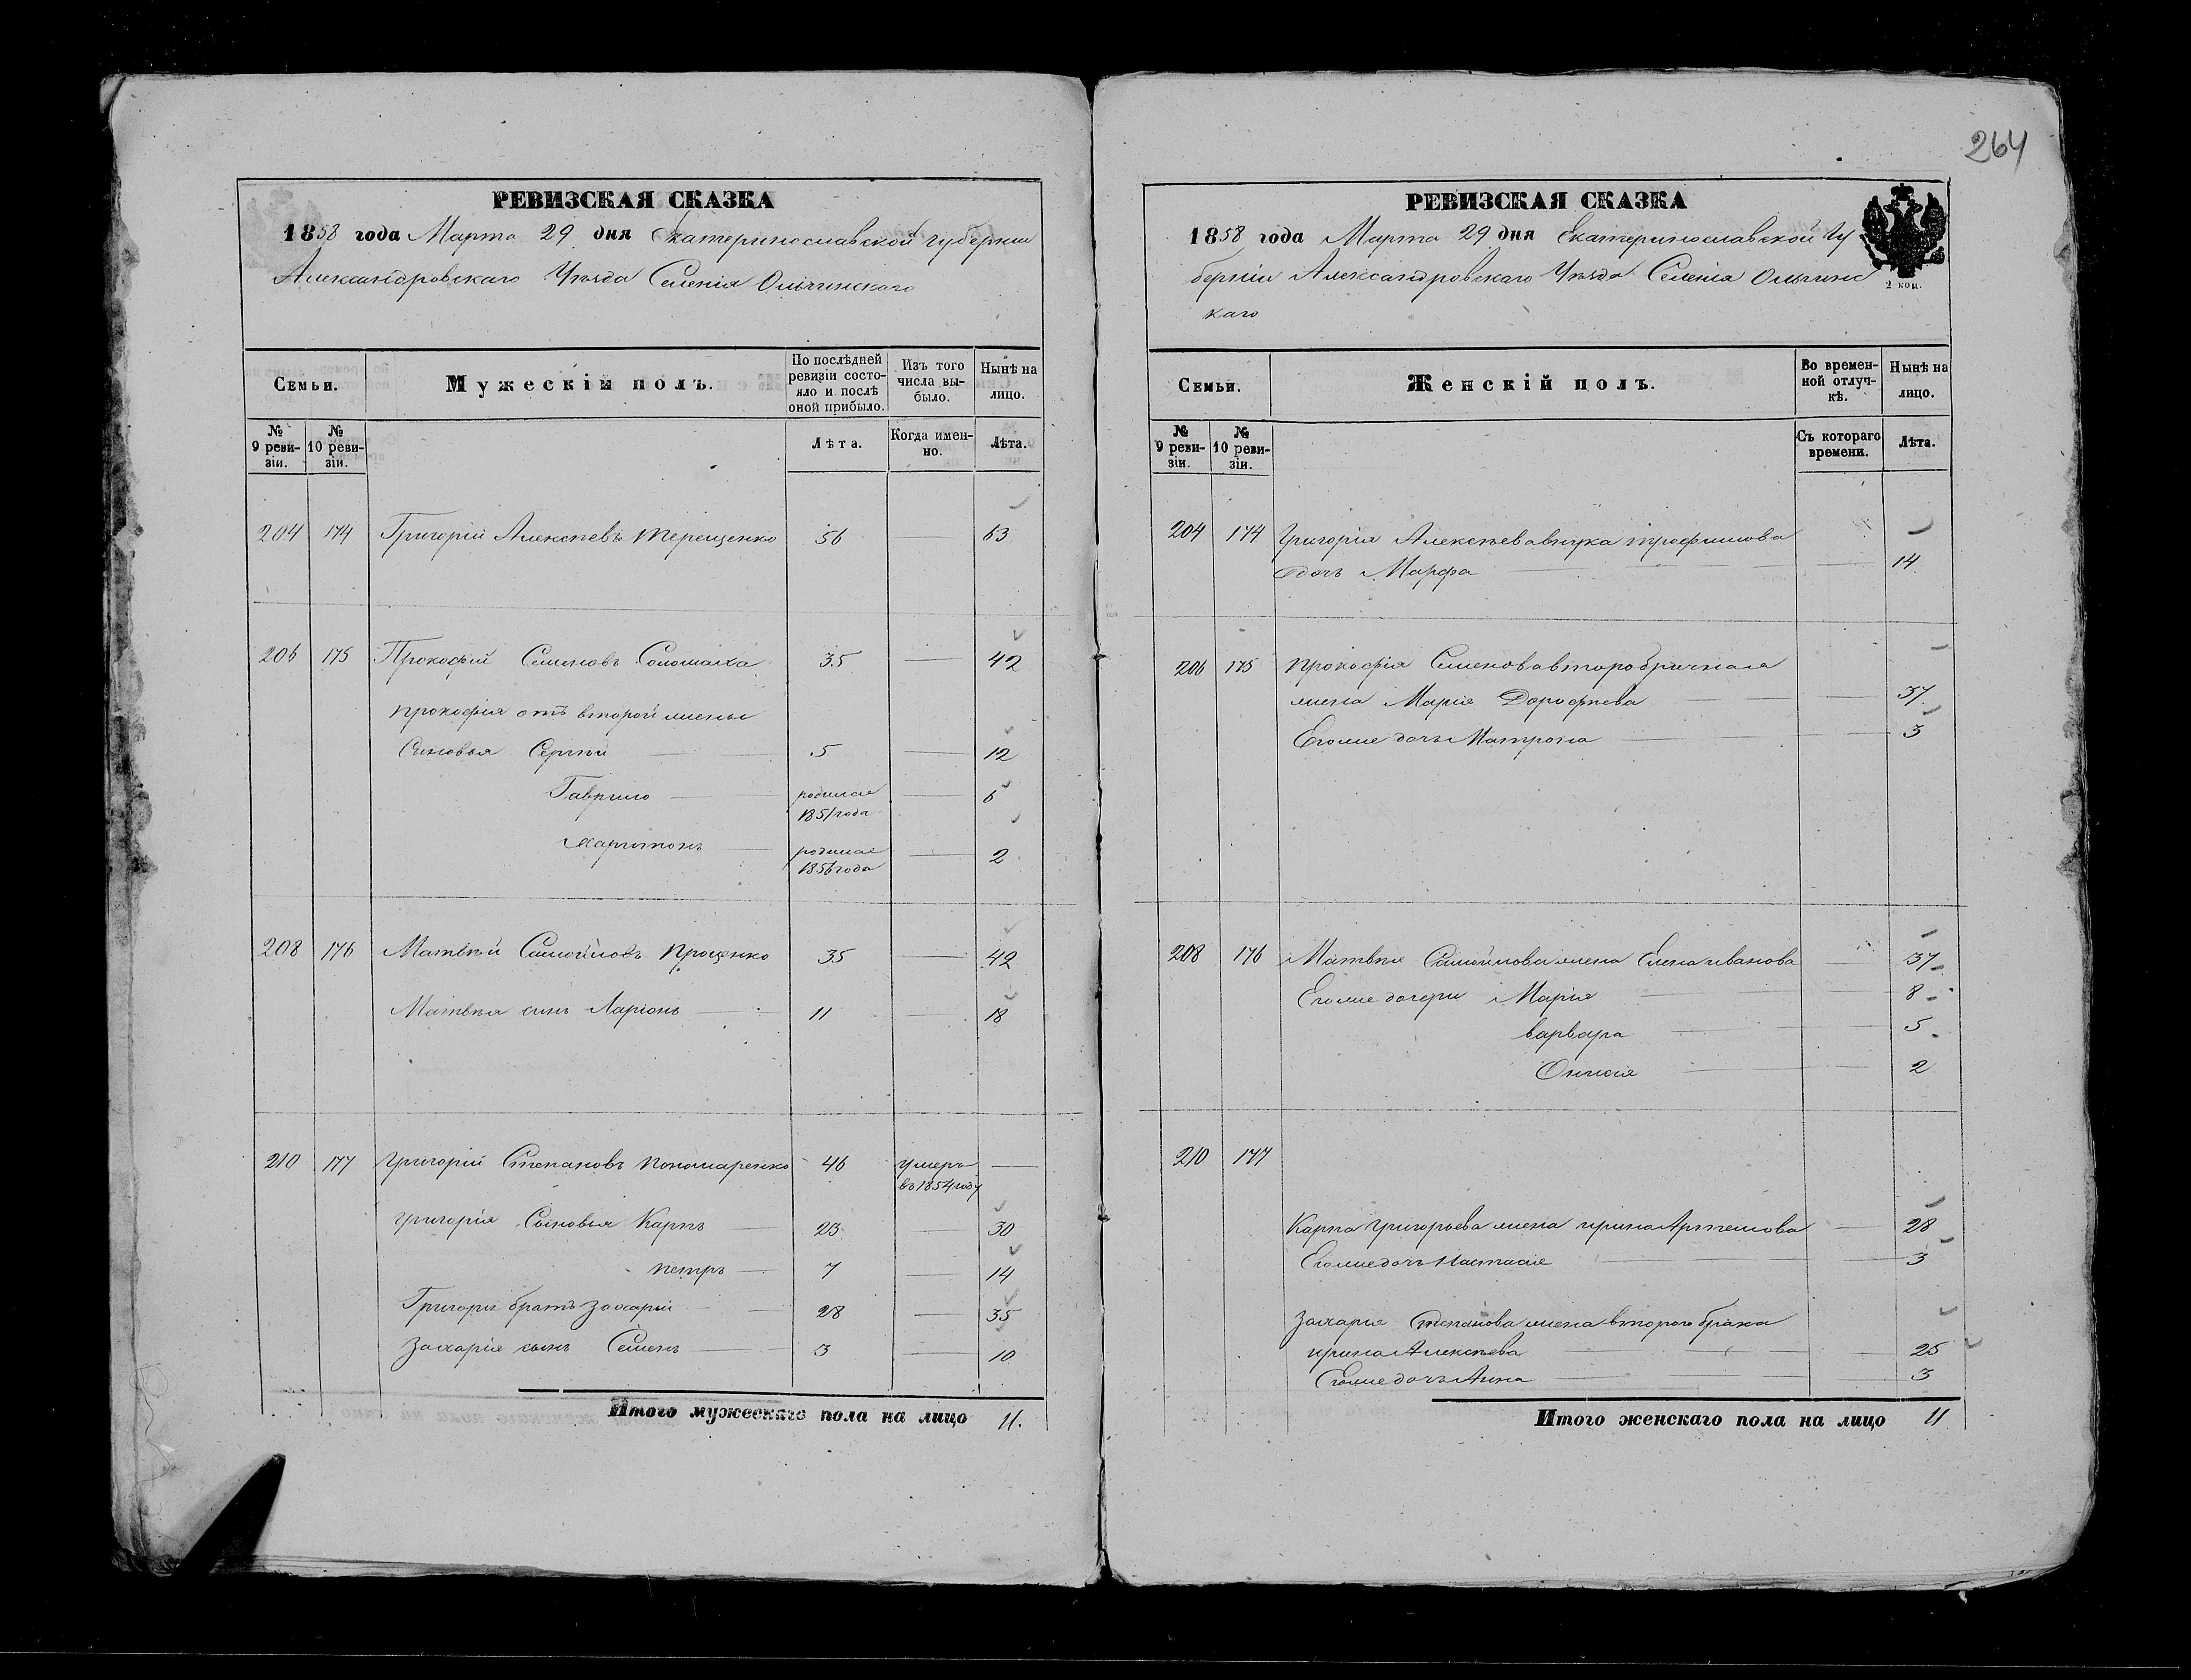 264
РЕВИЗСКАЯ СКАЗКА
1858 года Марта 29 дня Екатеринославской губернии
Александровскаго Уѣзда Селенія Ольгинскаго
Семьи.
Мужескій полъ.
По послѣдней ревизіи состояло и послѣ оной прибыло.
Изъ того числа выбыло.
Нынѣ на лицо.
№ 9 ревизіи.
№ 10 ревизіи.
Лѣта.
Когда именно.
Лѣта.
204 174 Григорій Алексѣевъ Терещенко 56 — 63
206 175 Прокофій Семеновъ Соломаха 35 — 42
Прокофія отъ второй жены
Сыновья Сергѣй — 5 — 12
Гаврило — родился — 6
1851 года
Харитонъ — родился — 2
1856 года
208 176 Матвѣй Самойловъ Проценко 35 — 42
Матвѣя сынъ Ларіонъ — 11 — 18
210 177 Григорій Степановъ Пономаренко 46 умеръ —
въ 1854 году
Григорія Сыновья Карпъ — 23 — 30
Петръ — 7 — 14
Григорія братъ Захарій — 28 — 35
Захарія сынъ Семенъ — 3 — 10
Итого мужескаго пола на лицо 11.
РЕВИЗСКАЯ СКАЗКА
1858 года Марта 29 дня Екатеринославской Гу
берніи Александровскаго Уѣзда Селенія Ольгинс
каго
2 коп.
Семьи.
Женскій полъ.
Во временной отлучкѣ.
Нынѣ на лицо.
№ 9 ревизіи.
№ 10 ревизіи.
Съ котораго времени.
Лѣта.
204 174 Григорія Алексѣева внука Трофимова
дочь Марфа — — 14
206 175 Прокофія Семенова второбрачная
жена Марія Дорофѣева — — 37
Егоже дочь Матрона — 3
208 176 Матвѣя Самойлова жена Елена Иванова — 37
Егоже дочери Марія — 8
Варвара — 5
Онисія — 2
210 177
Карпа Григорьева жена Ирина Артемова — 28
Егоже дочь Настасія — 3
Захарія Степанова жена второго брака
Ирина Алексѣева — 25
Егоже дочь Анна — 3
Итого женскаго пола на лицо 11